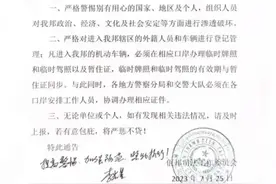 一、严格警惕别有用心的国家、地区及个人,组织人员
对我邦政治、经济、文化及社会安定等方面进行渗透破坏。
二、严格对进入我邦辖区的外籍人员和车辆进行登记管
理;凡进入我邦的机动车辆,必须在相应口岸办理临时牌照
和临时驾照以及暂住证,临时牌照和临时驾照的有效期与暂
住证同步。与此同时,各地方警察分局和交警大队必须在各
口岸安排工作人员,协调办理相应证件。
三、无论单位或个人,如有发现相关违法情况,请及时
上报,若有意包庇,将严惩不贷!
特此通告
2023年7月25日